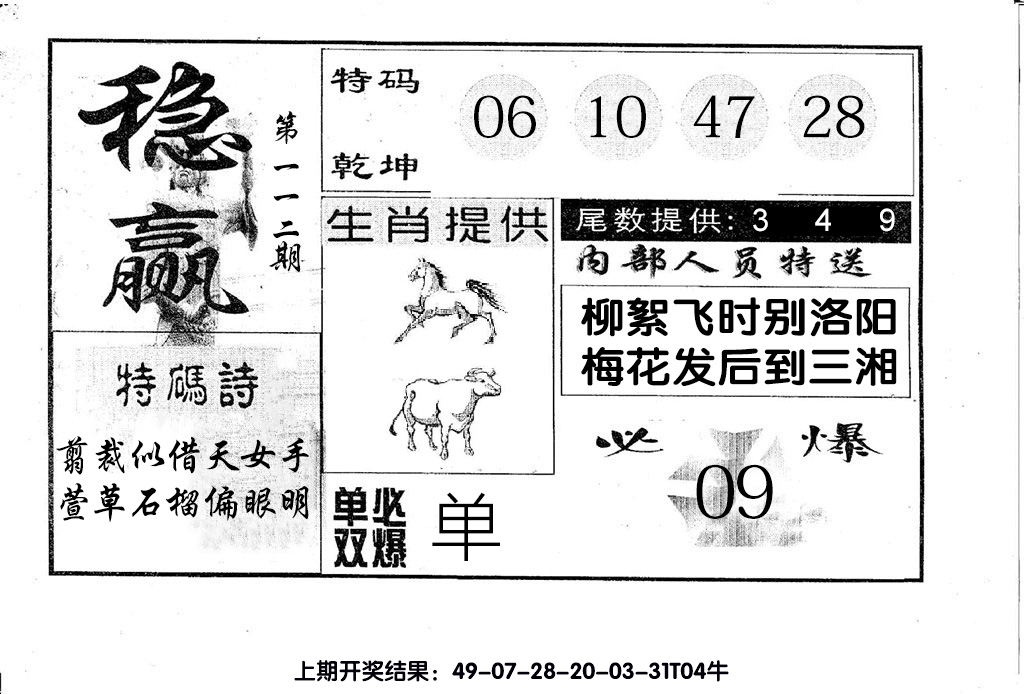 稳赢
第一一二期
特码
乾坤
06 10 47 28
生肖提供
尾数提供: 3 4 9
内部人员特送
柳絮飞时别洛阳
梅花发后到三湘
特碼詩
剪裁似借天女手
萱草石榴偏眼明
必爆
09
单双必爆
单
上期开奖结果：49-07-28-20-03-31T04牛